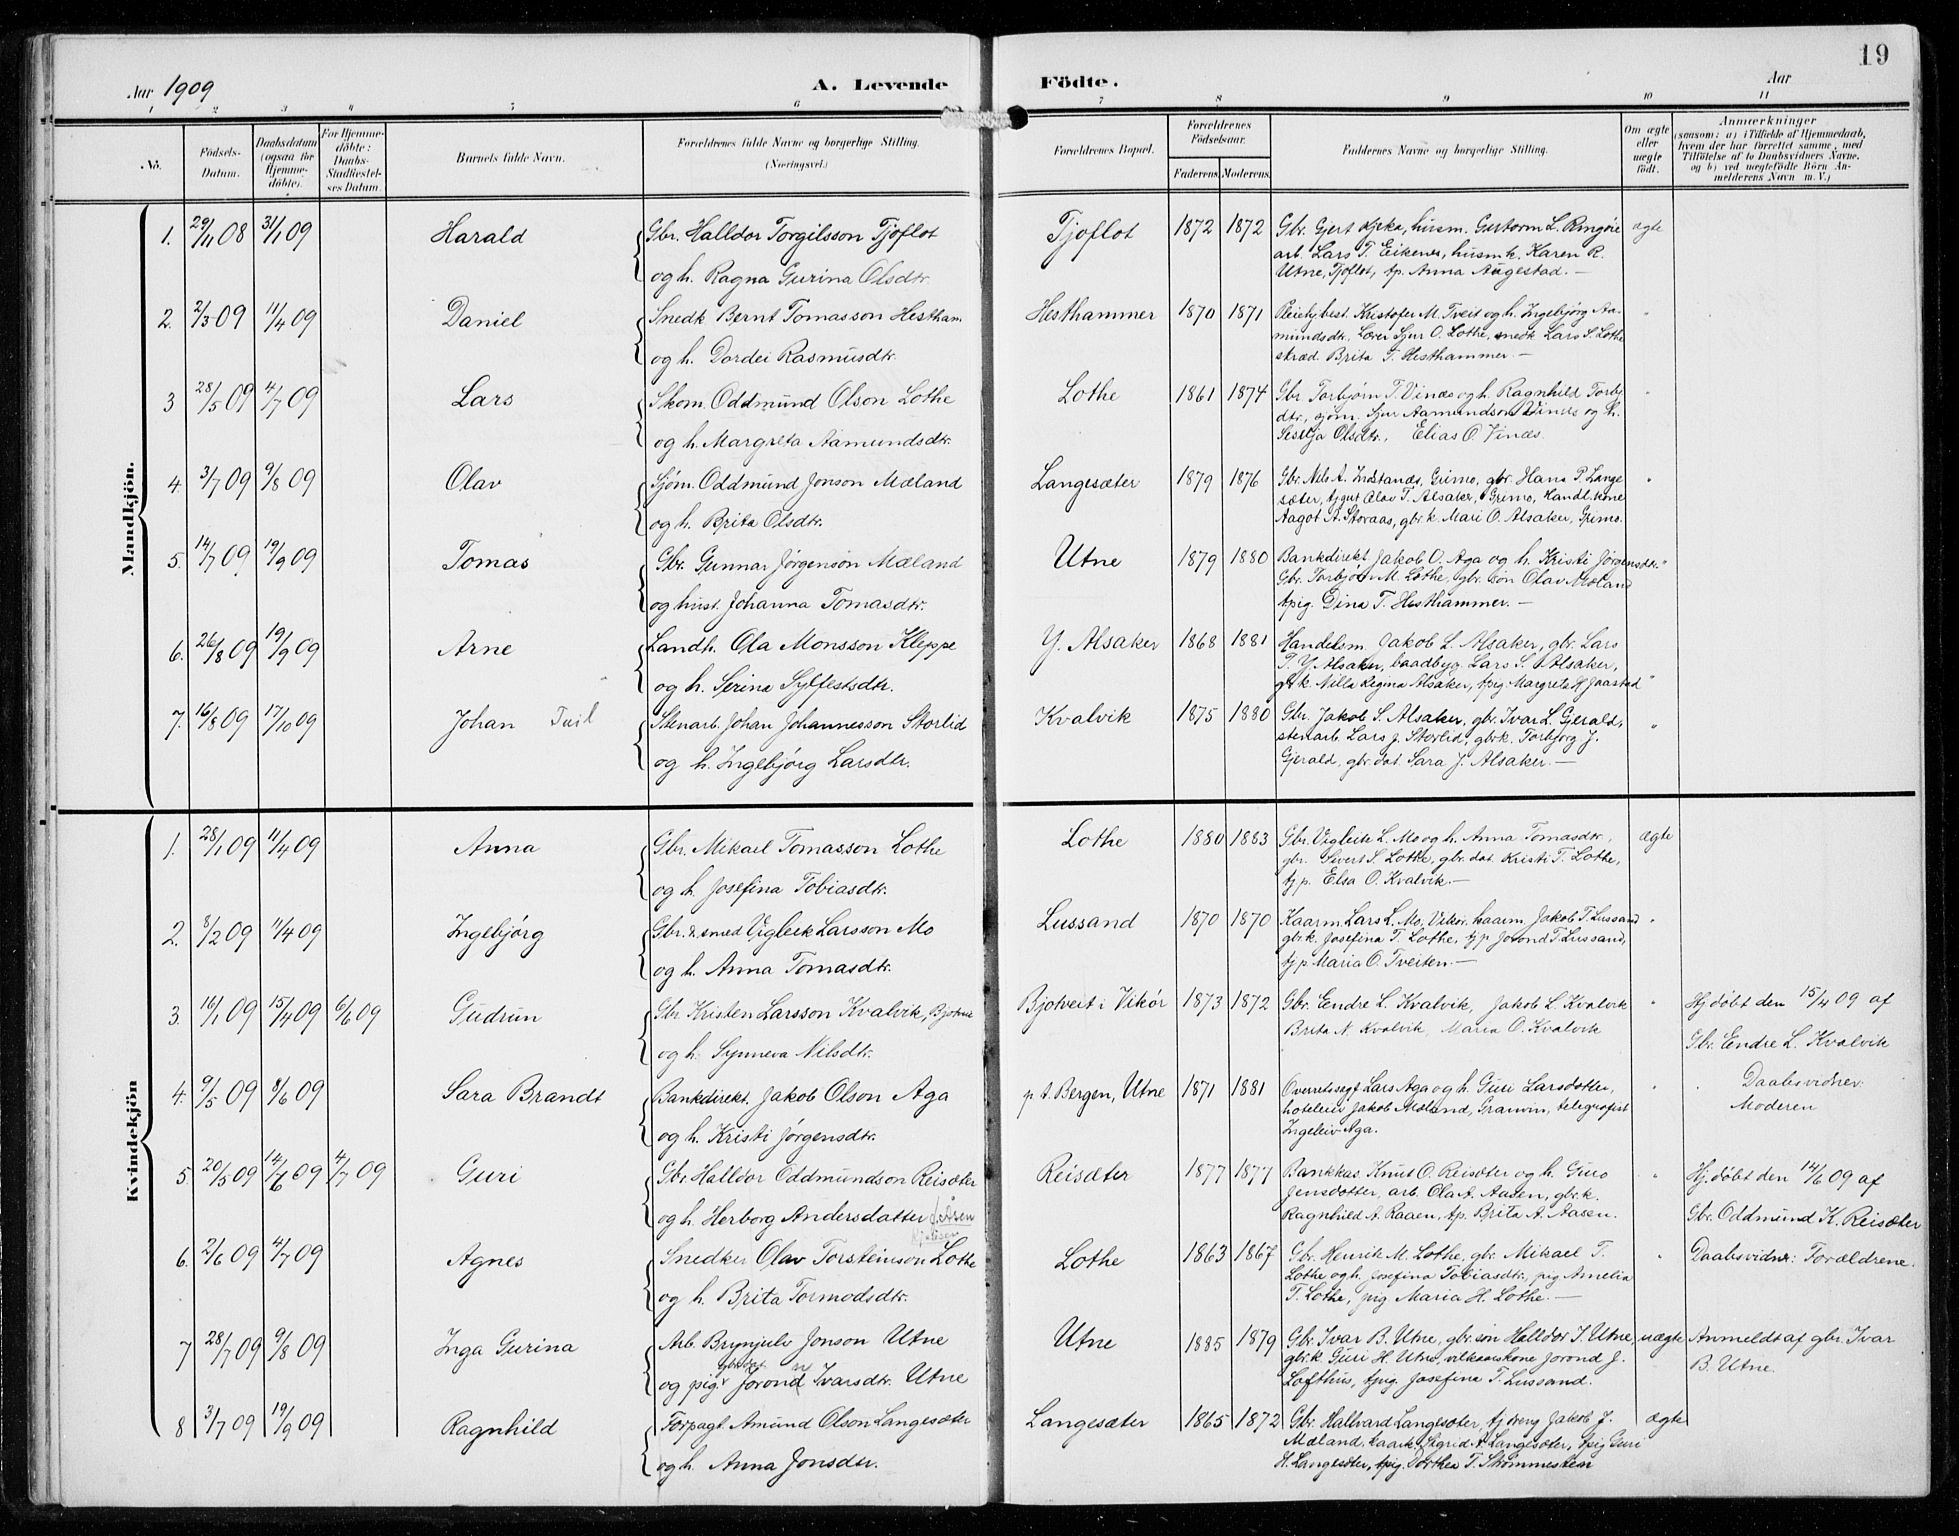 19
Aar 1909
A. Levende
Födte.
Aar
1 2 3 4 5 6 7 8 9 10 11
No.
Födsels-Datum.
Daabsdatum (ogsaa for Hjemme-döbte).
For Hjemme-döbte: Daabs-Stadfæstel-ses Datum.
Barnets fulde Navn.
Forældrenes fulde Navne og borgerlige Stilling. (Næringsvei.)
Forældrenes Bopæl.
Forældrenes Födselsaar.
Faderens. Moderens.
Faddernes Navne og borgerlige Stilling.
Om ægte eller uægte födt.
Anmærkninger
(saasom: a) i Tilfælde af Hjemmedaab, hvem der har forrettet samme, med Tilföielse af to Daabsvidners Navne, og b) ved uægtefödte Börn An-melderens Navn m. V.)
Mandkjön.
1. 29/11 08 31/1 09 Harald Gbr. Halldor Torgilsson Tjoflot Tjoflot 1872 1872 Gbr. Gjert husm. Guttorm L. Ringöie ægte
og h. Ragna Gurina Olsdtr. arb. Lars T. Eikenes, husmk. Karen R.
Utne, Tjoflot, tp. Anna Augestad. —
2. 2/3 09 11/4 09 Daniel Snedk Bernt Tomasson Hestham. Hesthammer 1870 1871 Kristofer M. Tveit og h. Ingebjørg Aa- "
og h. Dordei Rasmusdtr. mundsdtr. Lærer Sjur O. Lothe, snedk Lars S. Lothe
skræd. Brita T. Hesthammer. —
3 28/5 09 4/7 09 Lars Skom. Oddmund Olson Lothe Lothe 1861 1874 Gbr Torbjørn T. Vinæs og h. Ragnhild Torbj. "
og h. Margreta Aamundsdtr. dtr., sjøm. Sjur Aamundson Vines og h.
Siselja Olsdtr., Elias O. Vinæs.
4. 3/7 09 9/8 09 Olav Sjøm. Oddmund Jonson Mæland Langesæter 1879 1876 Gbr. Nils A. Indstanæs, Grimo, gbr. Hans P. Lange "
og h. Brita Olsdtr. sæter, tjgut Olav T. Alsaker, Grimo, Handl.kone
Aagot A. Storaas, gbr.k. Mari O. Alsaker, Grimo.
5. 14/7 09 19/9 09 Tomas Gbr. Gunnar Jørgenson Mæland Utne 1879 1880 Bankdirekt. Jakob O. Aga og h. Kristi Jørgensdtr. "
og hust. Johanna Tomasdtr. Gbr. Torbjør M. Lothe, gbr. søn Olav Mæland
tpig. Dina T. Hesthammer. —
6. 26/8 09 19/9 09 Arne Landh. Ola Monsson Kleppe Y. Alsaker 1868 1881 Handelsm. Jakob L. Alsaker, gbr. Lars
og h. Serina Sylfestsdtr. P. Y. Alsaker, baadbyg. Lars S. Alsaker,
gbrk. Nilla Regina Alsaker, tpig. Margreta H. Jaastad "
7. 16/8 09 17/10 09 Johan Tuil Stenarb. Johan Johannesson Storlid Kvalvik 1875 1880 Gbr. Jakob S. Alsaker, gbr. Ivar L. Gjerald, "
og h. Ingebjørg Larsdtr. stenarb. Lars J. Storlid, gbrk. Torbjørg J.
Gjerald, gbr. dat. Sara J. Alsaker. —
Kvindekjön
1. 28/1 09 11/4 09 Anna Gbr. Mikael Tomasson Lothe Lothe 1880 1883 Gbr. Vigleik L. Mo og h. Anna Tomasdtr. ægte
og h. Josefina Tobiasdtr. gbr. Sivert S. Lothe, gbr. dat. Kristi T. Lothe,
tj p. Elsa O. Kvalvik. —
2. 8/2 09 11/4 09 Ingebjørg Gbr. & smed Vigleik Larsson Mo Lussand 1870 1870 Kaarm. Lars L. Mo, Vikør, kaarm. Jakob T. Lussand "
og h. Anna Tomasdtr. gbrk. Josefina T. Lothe, tj p. Jorond T. Lussand,
tj p. Maria O. Tveiten. —
3. 16/1 09 15/4 09 6/6 09 Gudrun Gbr. Kristen Larsson Kvalvik, Bjotvei Bjotveit i Vikör 1873 1872 Gbr. Endre L. Kvalvik, Jakob L. Kvalvik " Hj.døbt den 15/4 09 af
og h. Synneva Nilsdtr. Brita N. Kvalvik, Maria O. Kvalvik Gbr. Endre L. Kvalvik
4. 9/5 09 8/6 09 Sara Brandt Bankdirekt. Jakob Olson Aga p. t. Bergen, Utne 1871 1881 Overretssagf. Lars Aga og h. Guri Larsdotter, " Daabsvidne:
og h. Kristi Jørgensdtr. hoteleier Jakob Mæland, Granvin, telegrafist Moderen
Ingeleiv Aga.
5. 20/5 09 14/6 09 4/7 09 Guri Gbr. Halldor Oddmundson Reisæter Reisæter 1877 1877 Bankkas. Knut O. Reisæter og h. Guro " Hj.døbt den 14/6 09 af
og h. Herborg Andersdatter Åsen Jensdotter, arb. Ola A. Aasen, gbr.k. Gbr. Oddmund K. Reisæter
Ragnhild A. Raaen, tp. Brita A. Aasen.
6. 2/6 09 4/7 09 Agnes Snedker Olav Torsteinson Lothe Lothe 1863 1867 Gbr. Henrik M. Lothe, gbr. Mikael T. " Daabsvidner: Forældrene.
og h. Brita Tormodsdtr. Lothe og h. Josefina Tobiasdtr., pig Amelia
T. Lothe, pig Maria H. Lothe. —
7 28/7 09 9/8 09 Inga Gurina Arb. Brynjulv Jonson Utne Utne 1885 1879 Gbr. Ivar B. Utne, gbr. søn Halldor I. Utne, uægte Anmeldt af gbr. Ivar
og pig. gbr.dat Jorond Ivarsdtr. Utne gbr.k. Guri H. Utne, vilkaarskone Jorond J. B. Utne.
Lofthus, tpig. Josefina T. Lussand.
8 3/7 09 19/9 09 Ragnhild Forpagt. Amund Olson Langesæter Langesæter 1865 1872 Gbr. Hallvard Langesæter, tj dreng Jakob J. ægte
og h. Anna Jonsdtr. Mæland, kaark. Sigrid A. Langesæter, tpig Guri
H. Langesæter, tpig. Dorthea T. Strommestein